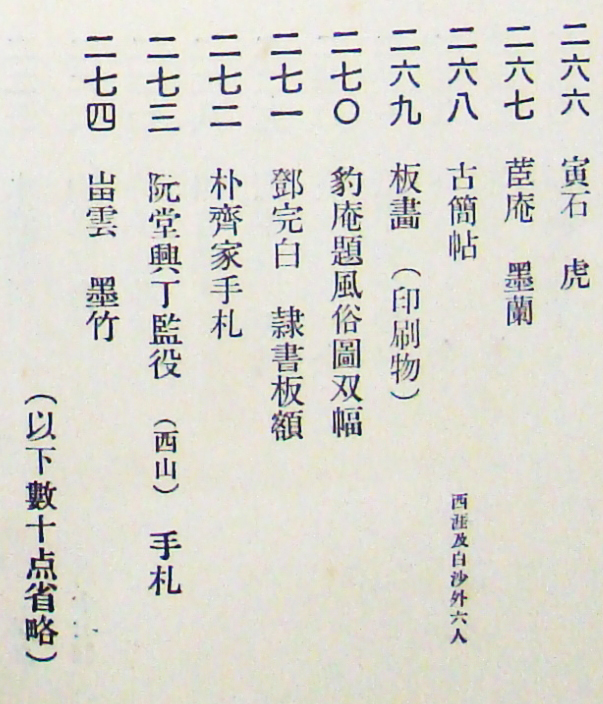 二六六 寅石 虎
二六七 茝庵 墨蘭
二六八 古簡帖 西涯及白沙外六人
二六九 板畵 (印刷物)
二七〇 豹庵題風俗圖双幅
二七一 鄧完白 隷書板額
二七二 朴齊家手札
二七三 阮堂興丁監役 (西山) 手札
二七四 甾雲 墨竹
(以下數十点省略)